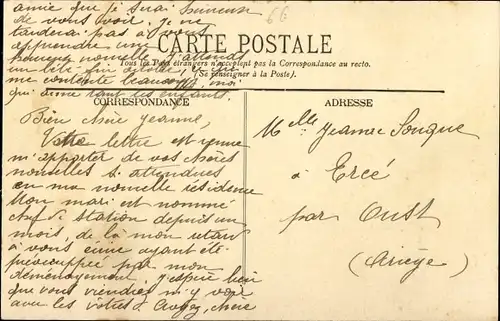 amie que je serai heureuse
de vous voir. Je ne
tarderai pas à vous
apprendre une
nouvelle j'attends
un bébé
me contente beaucoup, moi
qui aime tant les enfants.
66
CARTE POSTALE
Tous les Pays étrangers n'acceptent pas la Correspondance au recto.
(Se renseigner à la Poste).
CORRESPONDANCE
Bien chère Jeanne,
Votre lettre est venue
m'apporter de vos chères
nouvelles si attendues
en ma nouvelle résidence
Mon mari est nommé
chef de station depuis un
mois, de là mon retard
à vous écrire ayant été
préoccupée par mon
déménagement. J'espère bien
que vous viendrez m'y voir
avec les vôtres. Croyez, chère
ADRESSE
Melle Jeanne Souque
à Ercé
par Oust
(Ariège)